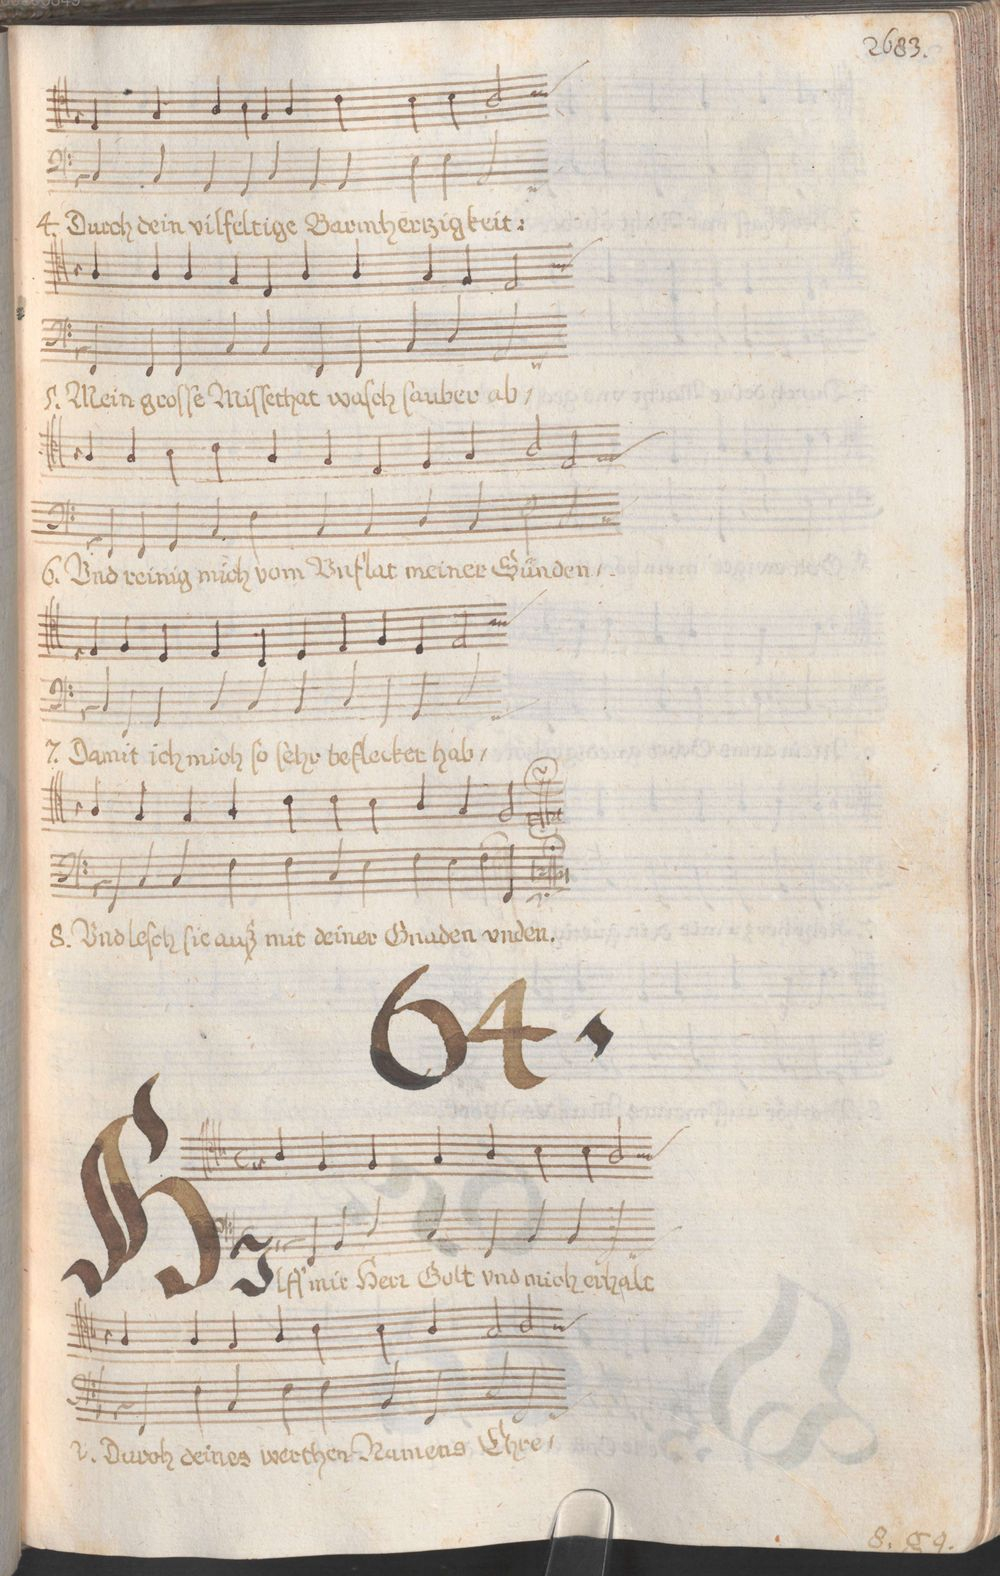 2683.
4. Durch dein vilfeltige Barmhertzigkeit:
5. Mein grosse Missethat wasch sauber ab /
6. Vnd reinig mich vom Vnflat meiner Sünden /
7. Damit ich mich so sehr beflecket hab /
8. Vnd lesch sie auß mit deiner Gnaden vnden.
64.
HIlff mir Herr Gott vnd mich erhalt
2. Durch deines werthen Namens Ehre /